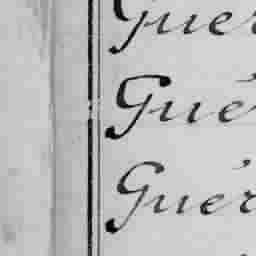 Guér
Gué
Guér